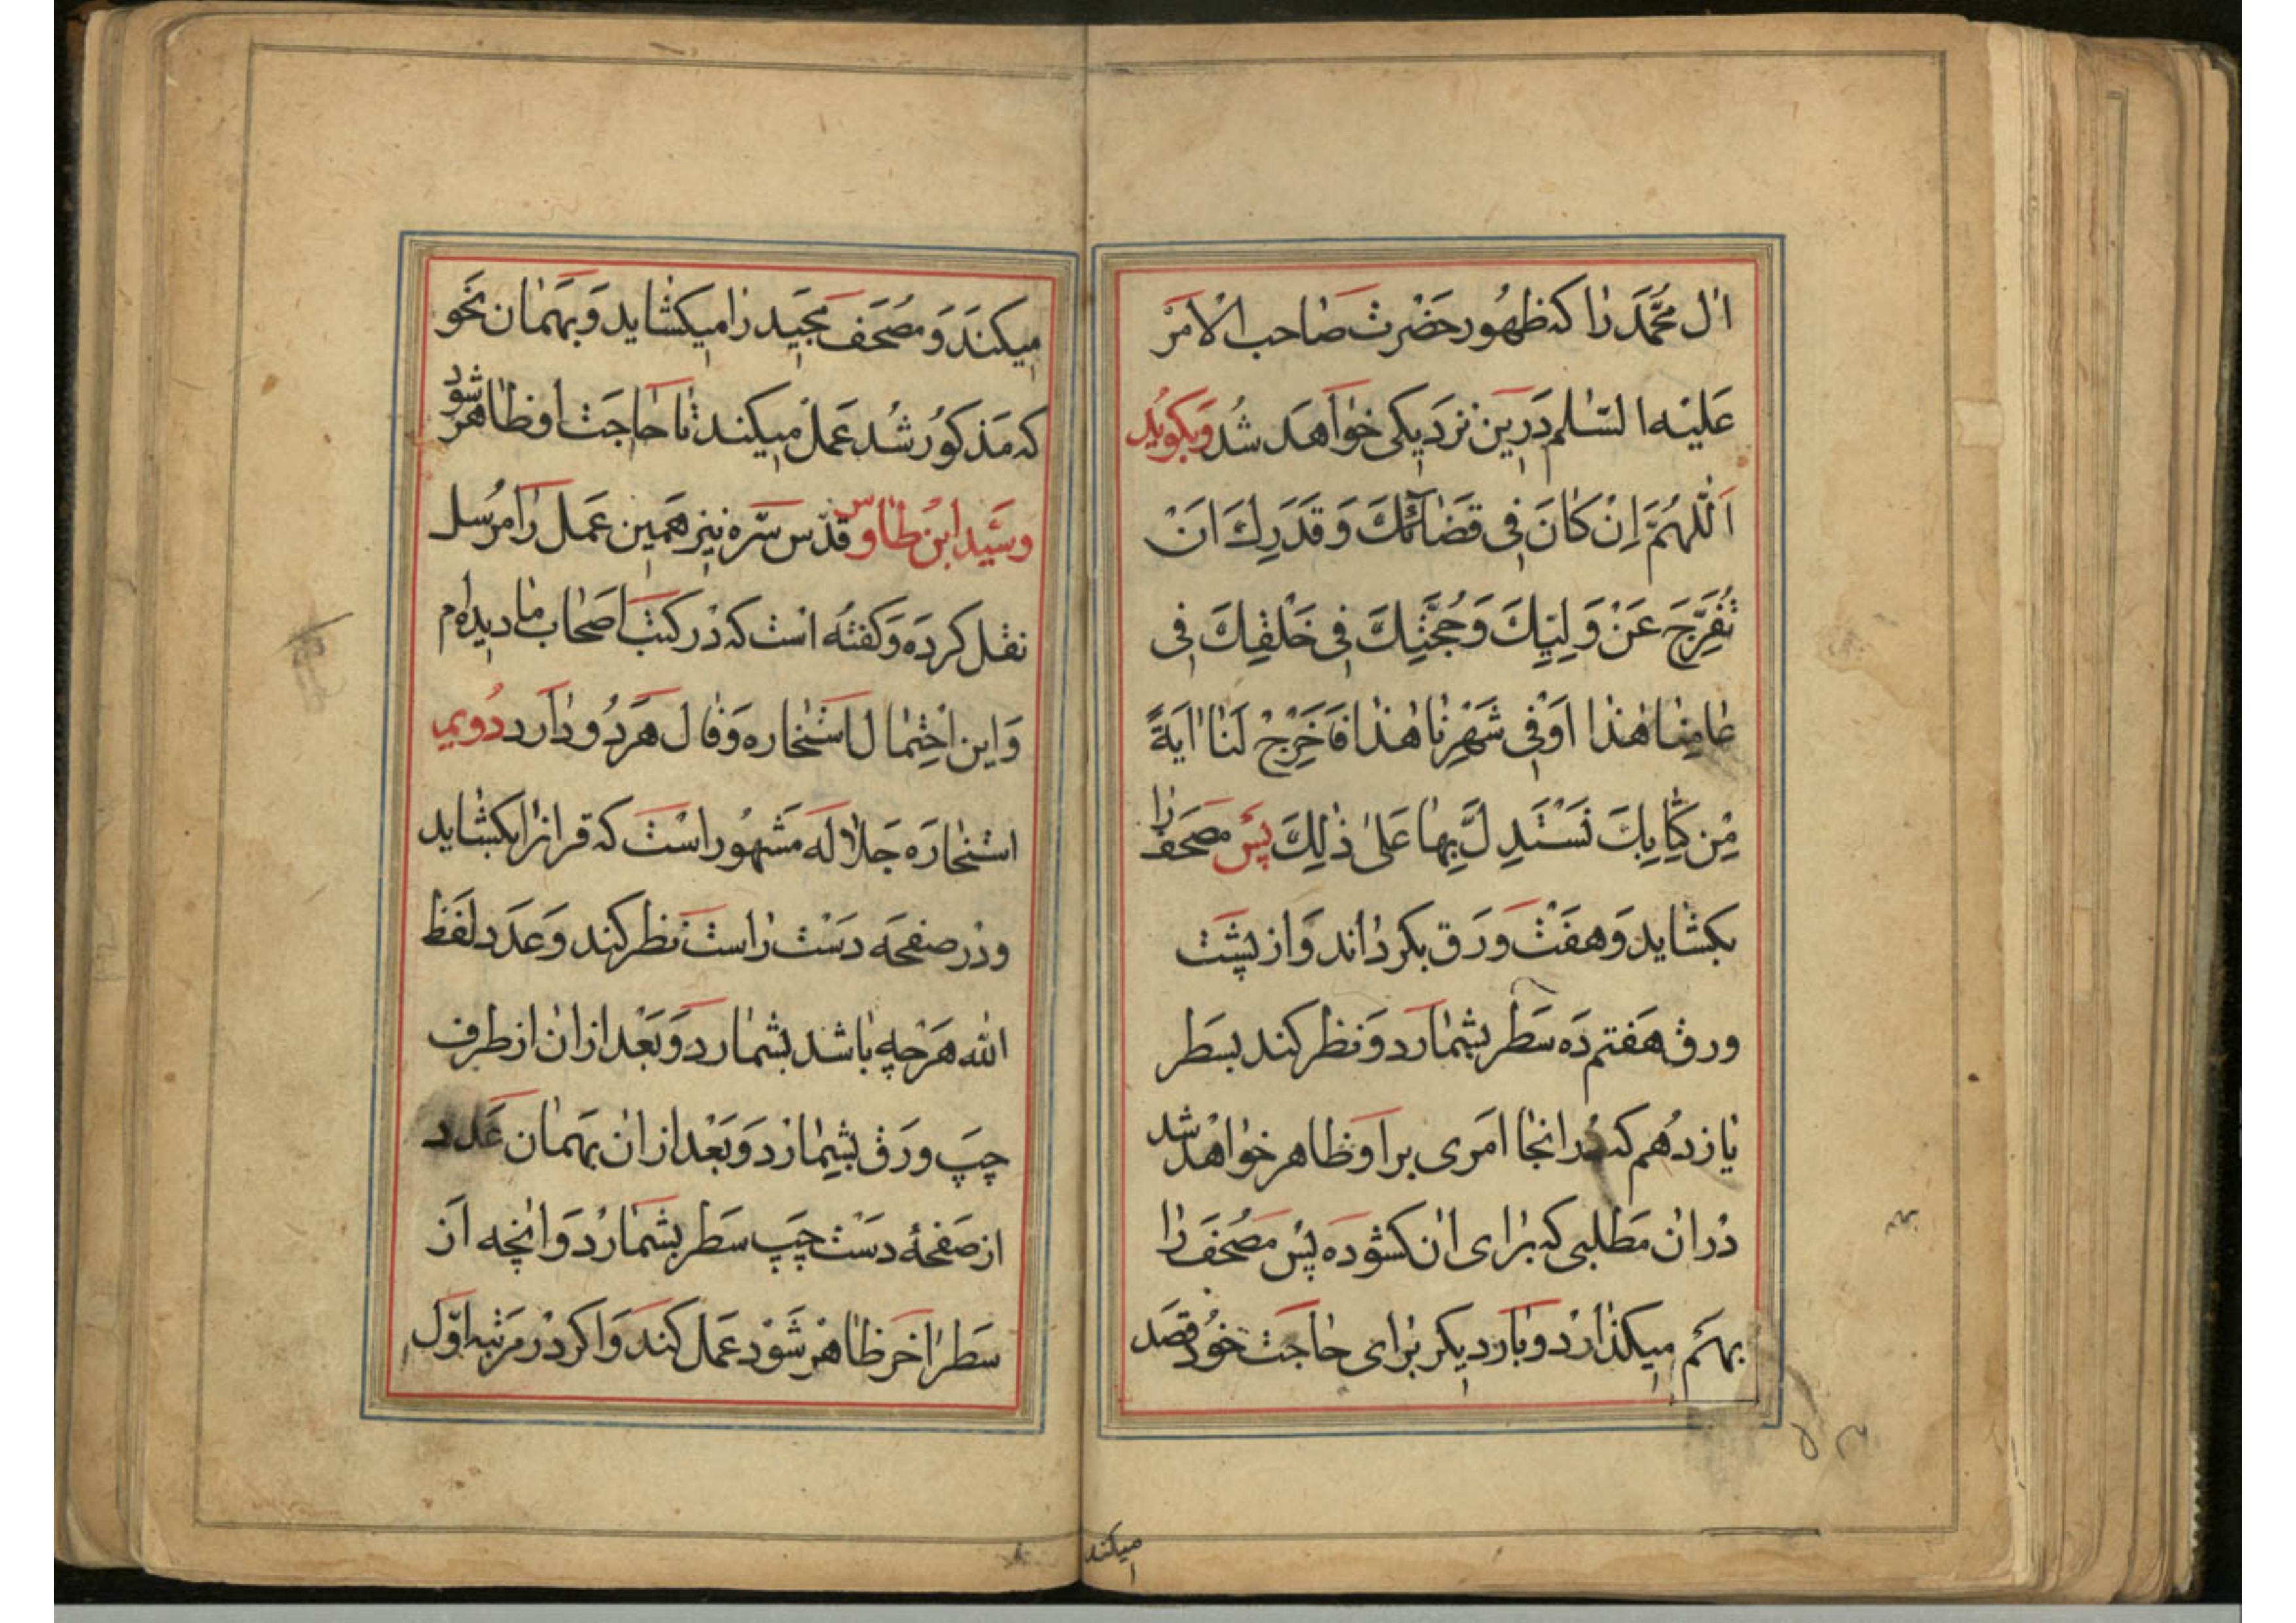 ال مُحَمَّد را که ظهُور حَضْرت صاحب الْامَرْ
عَلیْه السّلم دَرین نزدَیکی خواهَد شُد وَبکویُد
اَللّٰهُمَّ اِنْ کانَ فی قَضائِکَ وَ قَدَرِكَ انْ
تُفَرِّجَ عَنْ وَلِیِّكَ وَ حُجَّتِكَ فی خَلْقِكَ فی
عامِنا هٰذا اَوْفی شَهْرِنا هٰذا فَاَخْرِجْ لَنا ایَةً
مِن کِتابِكَ نَسْتَدِلَّ بِها عَلیٰ ذٰلِكَ پَسْ مصحَف را
بکشاید وَ هفَتْ وَرَق بکرداند وَ از پشَت
ورق هَفتم دَه سَطر بشمارَد وَ نظر کند بسَطر
یازدهُم که در انجا امَری بر او ظاهر خواهد شد
دْران مَطلبی که بَرای ان کشودَه پسْ مصُحَف را
بهَم میکذارْد و بار دیکر برای حاجَت خُود قصَد
میکند
میکنَد وَ مصُحَف مجَید را میکشاید وَ بهَمان نحَو
که مَذکوُر شُد عَمل میکند تا حاجَت او ظاهر شود
وسَیّد ابن طاوُس قدّس سَّره نیز همَین عَمل را مرُسل
نقل کردَه وَ کفتُه اسْت که دْر کتبَ اصَحاب ما دیده‌ام
وَ این احْتِمال استْخاره وَ فال هَردُو دارد دُویمی
استْخارَه جَلالَه مَشهُور اسْت که قران را بکشاید
ودْر صفحَه دَسْت راست نظر کند وَ عَدَد لفَظ
الله هَرْچه باشد بشمارد وَ بَعْد از ان از طرف
چپَ ورَق بشمارَد وَ بَعْد از ان بهَمان عَدد
از صَفحهٔ دسَْت چپَ سَطر بشَمارْد وَ انچه اَز
سَطر اخَر ظاهرْ شَوْد عَمل کند وَ اکر دْر مرَتبه اوّل